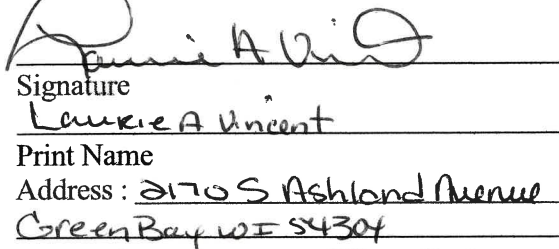 Laurie A Vincent
Signature
Laurie A Vincent
Print Name
Address : 2170 S Ashland Avenue
Green Bay WI 54304